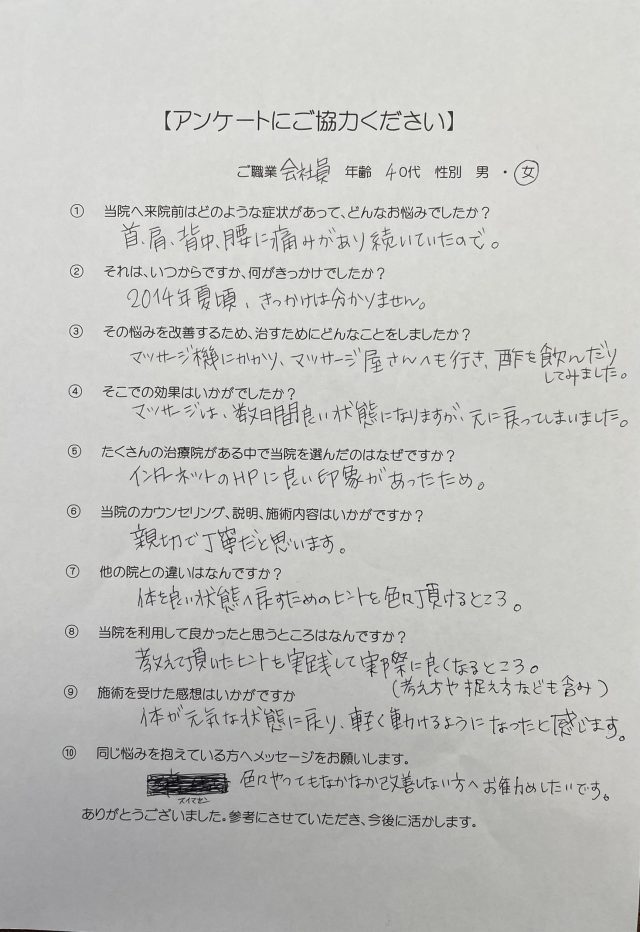 【アンケートにご協力ください】
ご職業 会社員 年齢 40代 性別 男 ・ 女
① 当院へ来院前はどのような症状があって、どんなお悩みでしたか？
首、肩、背中、腰に痛みがあり続いていたので。
② それは、いつからですか、何がきっかけでしたか？
2014年夏頃、きっかけは分かりません。
③ その悩みを改善するため、治すためにどんなことをしましたか？
マッサージ機にかかり、マッサージ屋さんへも行き、酢を飲んだり
してみました。
④ そこでの効果はいかがでしたか？
マッサージは、数日間良い状態になりますが、元に戻ってしまいました。
⑤ たくさんの治療院がある中で当院を選んだのはなぜですか？
インターネットのHPに良い印象があったため。
⑥ 当院のカウンセリング、説明、施術内容はいかがですか？
親切で丁寧だと思います。
⑦ 他の院との違いはなんですか？
体を良い状態へ戻すためのヒントを色々頂けるところ。
⑧ 当院を利用して良かったと思うところはなんですか？
教えて頂いたヒントを実践して実際に良くなるところ。
（考え方や捉え方なども含み）
⑨ 施術を受けた感想はいかがですか
体が元気な状態に戻り、軽く動けるようになったと感じます。
⑩ 同じ悩みを抱えている方へメッセージをお願いします。
色々やってもなかなか改善しない方へお勧めしたいです。
スイマセン
ありがとうございました。参考にさせていただき、今後に活かします。